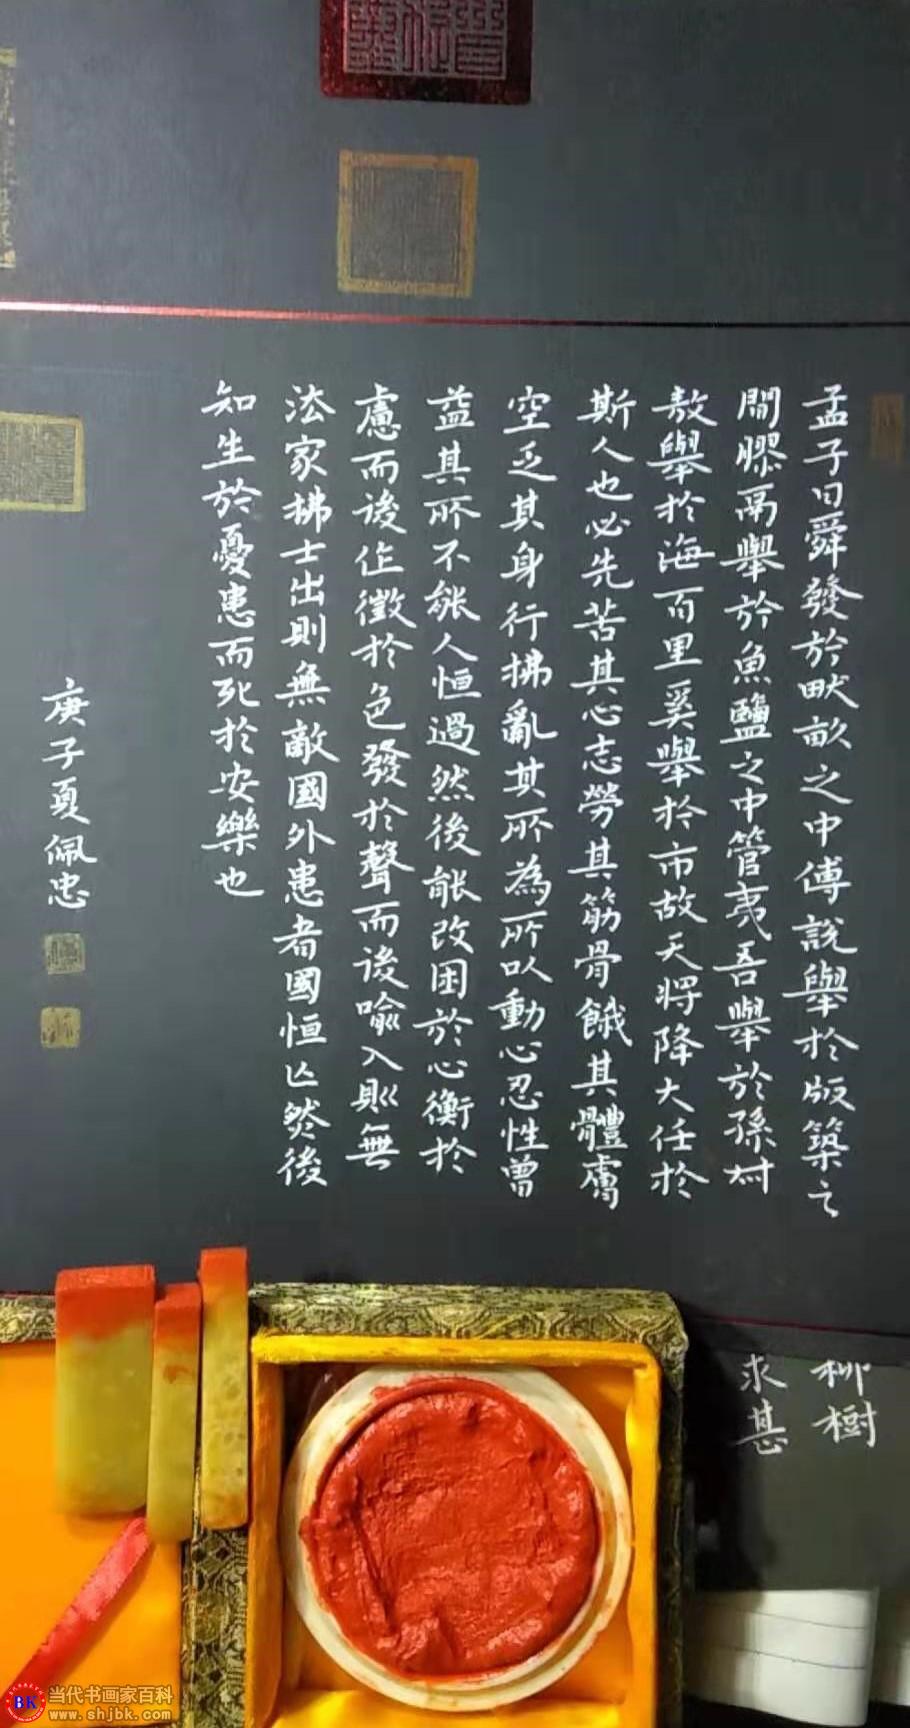 孟子曰舜發於畎畝之中傅說舉於版築之
間膠鬲舉於魚鹽之中管夷吾舉於孫叔
敖舉於海百里奚舉於市故天將降大任於
斯人也必先苦其心志勞其筋骨餓其體膚
空乏其身行拂亂其所為所以動心忍性曾
益其所不能人恒過然後能改困於心衡於
慮而後作徵於色發於聲而後喻入則無
法家拂士出則無敵國外患者國恒亡然後
知生於憂患而死於安樂也
庚子夏佩忠
柳樹
求甚
BK
当代书画家百科
www.shjbk.com